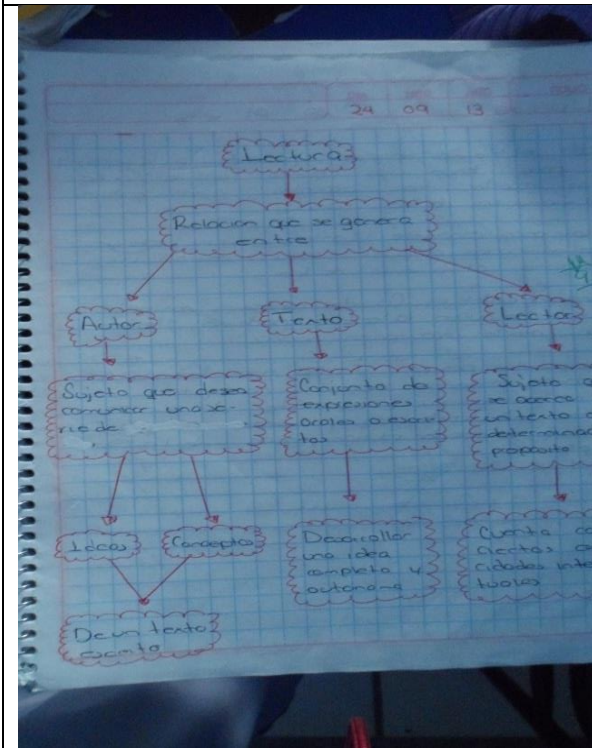 24 09 13
Lectura
Relacion que se genera
entre
Autor
Texto
Lector
Sujeto que desea
comunicar una se-
rie de
Conjunto de
expresiones
orales o escri-
tas
Sujeto
se acerca
un texto
determinad
proposito
Ideas
Conceptos
De un texto
escrito
Desarrollar
una idea
completa y
autónoma
Cuenta co
ciertas
cidades inte
tuales